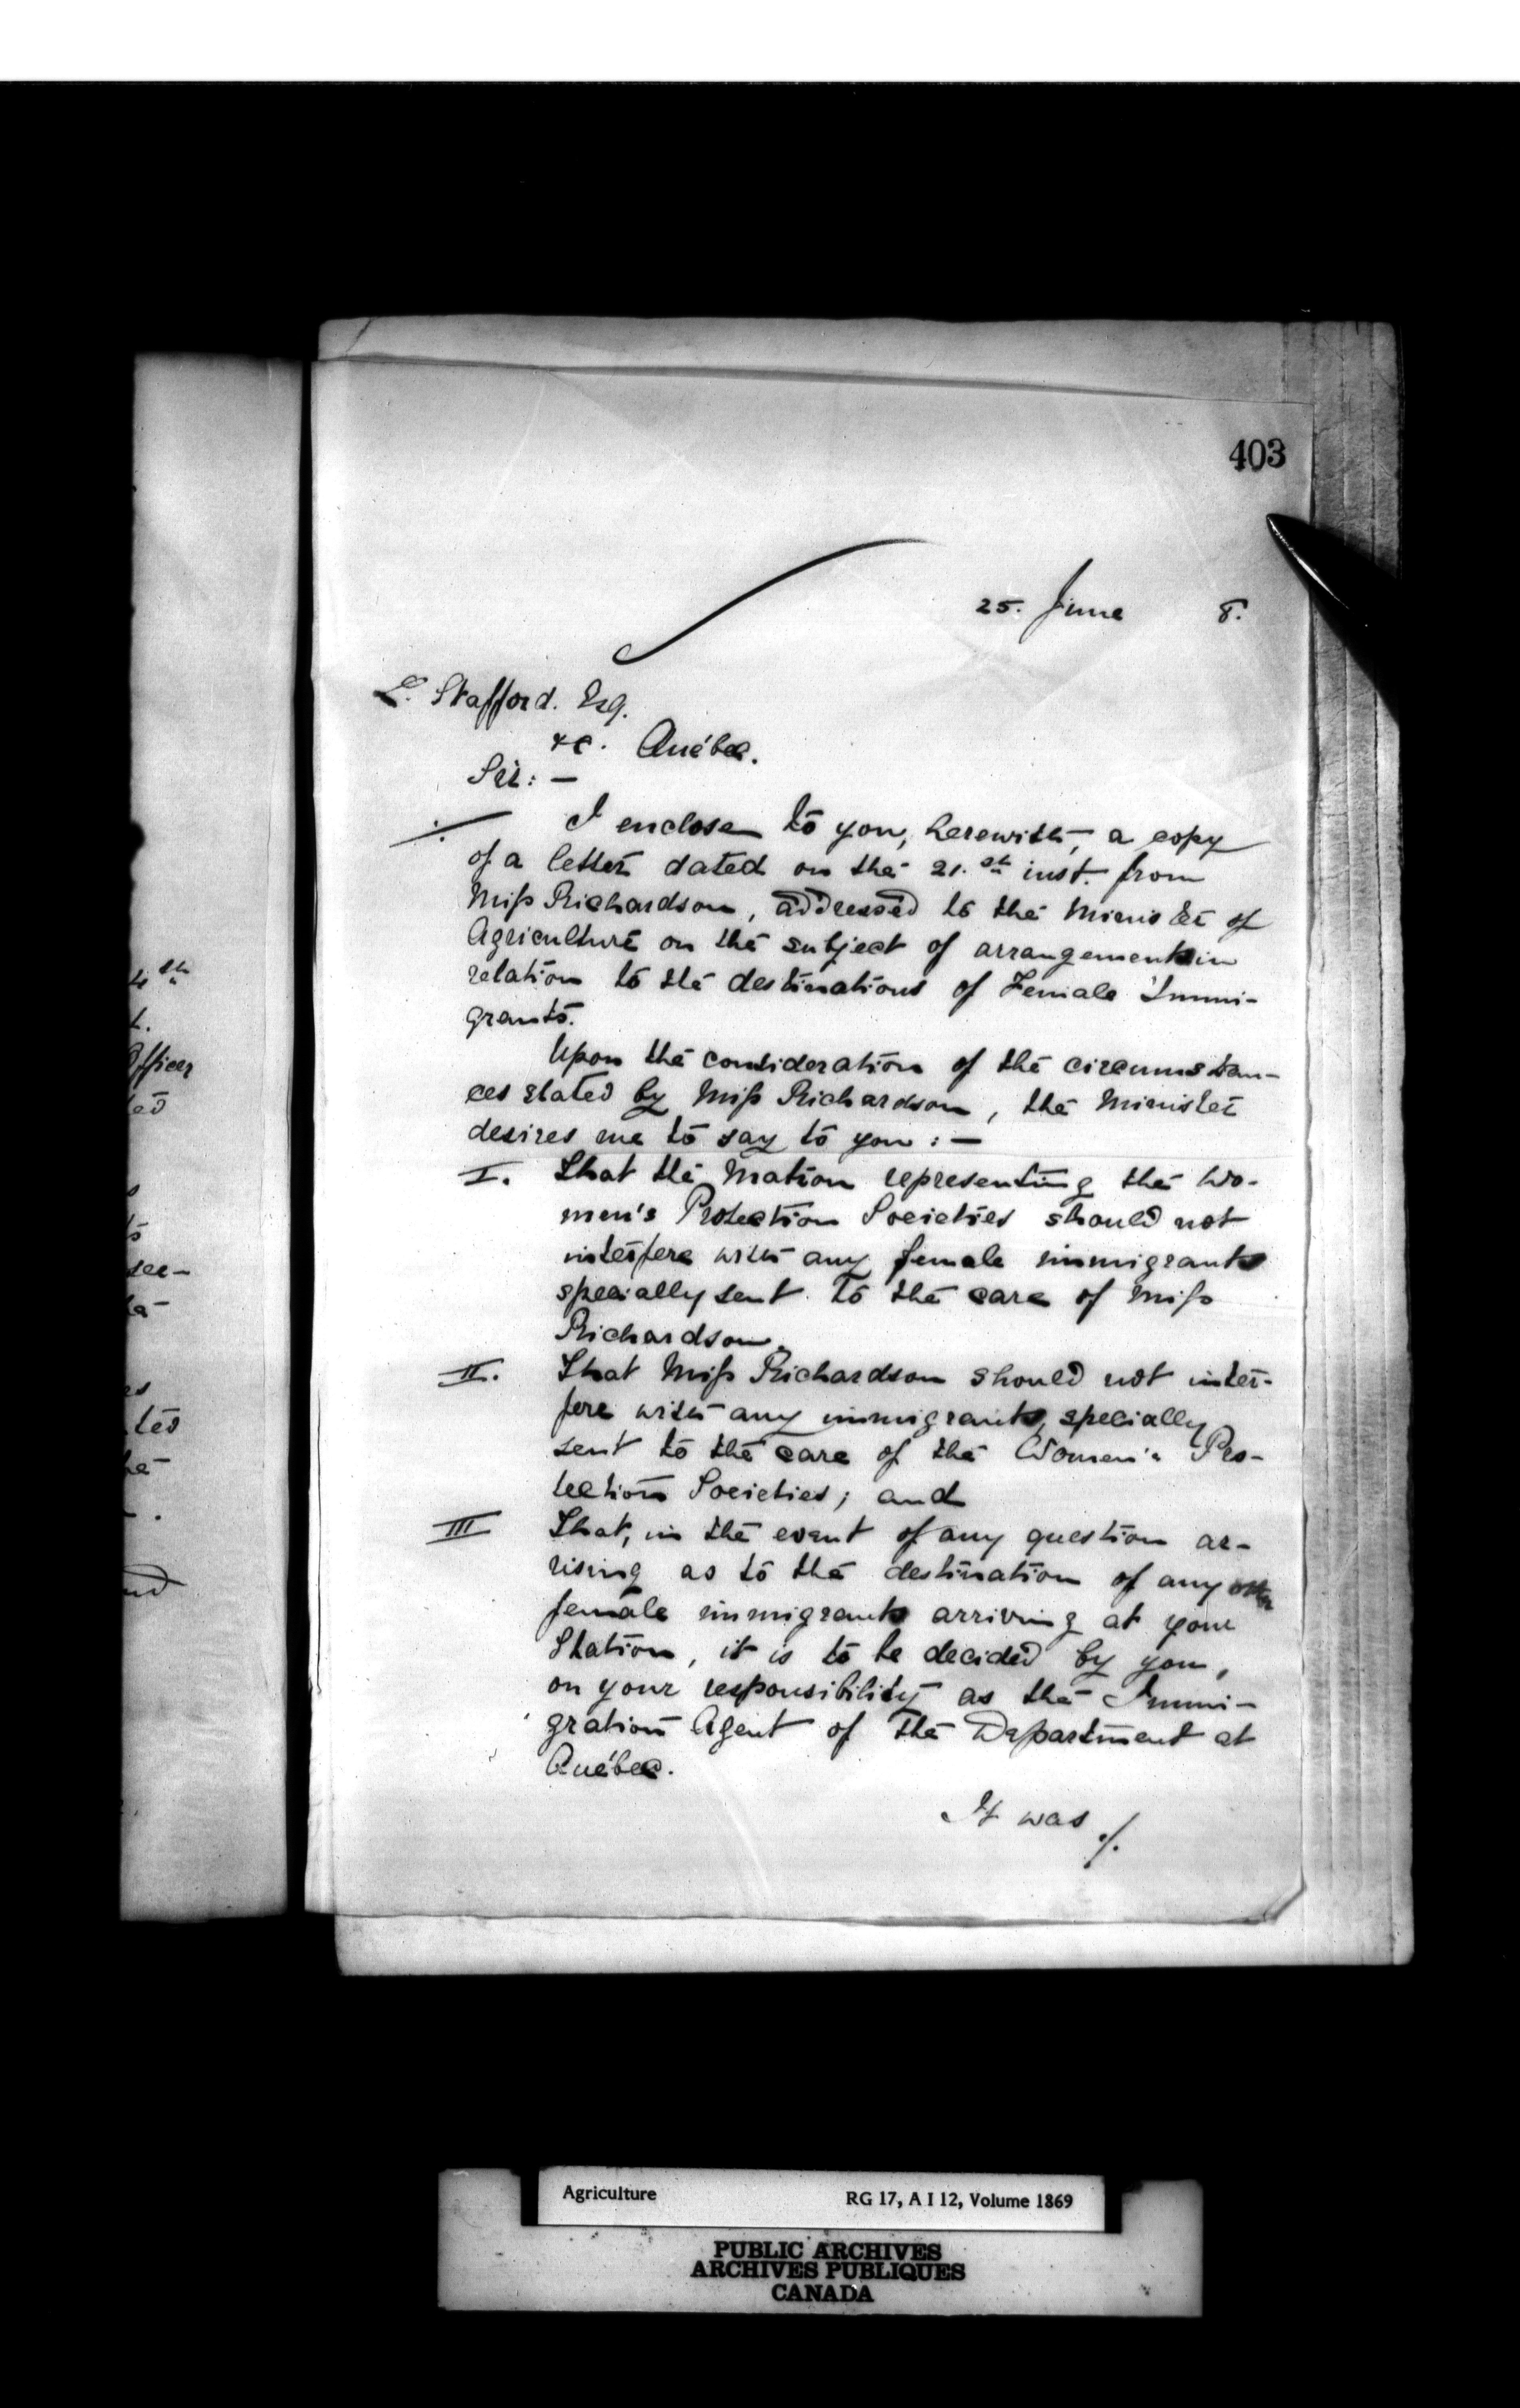 403
25. June 8.
L. Stafford. Esq.
&c. Québec.
Sir: —
I enclose to you, herewith, a copy
of a letter dated on the 21.st inst. from
Miss Richardson, addressed to the Minister of
Agriculture on the subject of arrangements in
relation to the destinations of Female Immi-
grants.
Upon the consideration of the circumstan-
ces stated by Miss Richardson, the Minister
desires me to say to you: —
I. That the Matron representing the Wo-
men's Protection Societies should not
interfere with any female immigrants
specially sent to the care of Miss
Richardson.
II. That Miss Richardson should not inter-
fere with any immigrants, specially
sent to the care of the Women's Pro-
tection Societies; and
III That, in the event of any question ar-
rising as to the destination of any other
female immigrants arriving at your
Station, it is to be decided by you,
on your responsibility as the Immi-
gration Agent of the Department at
Québec.
It was ./.
4th
Officer
ted
Agriculture RG 17, A I 12, Volume 1869
PUBLIC ARCHIVES
ARCHIVES PUBLIQUES
CANADA